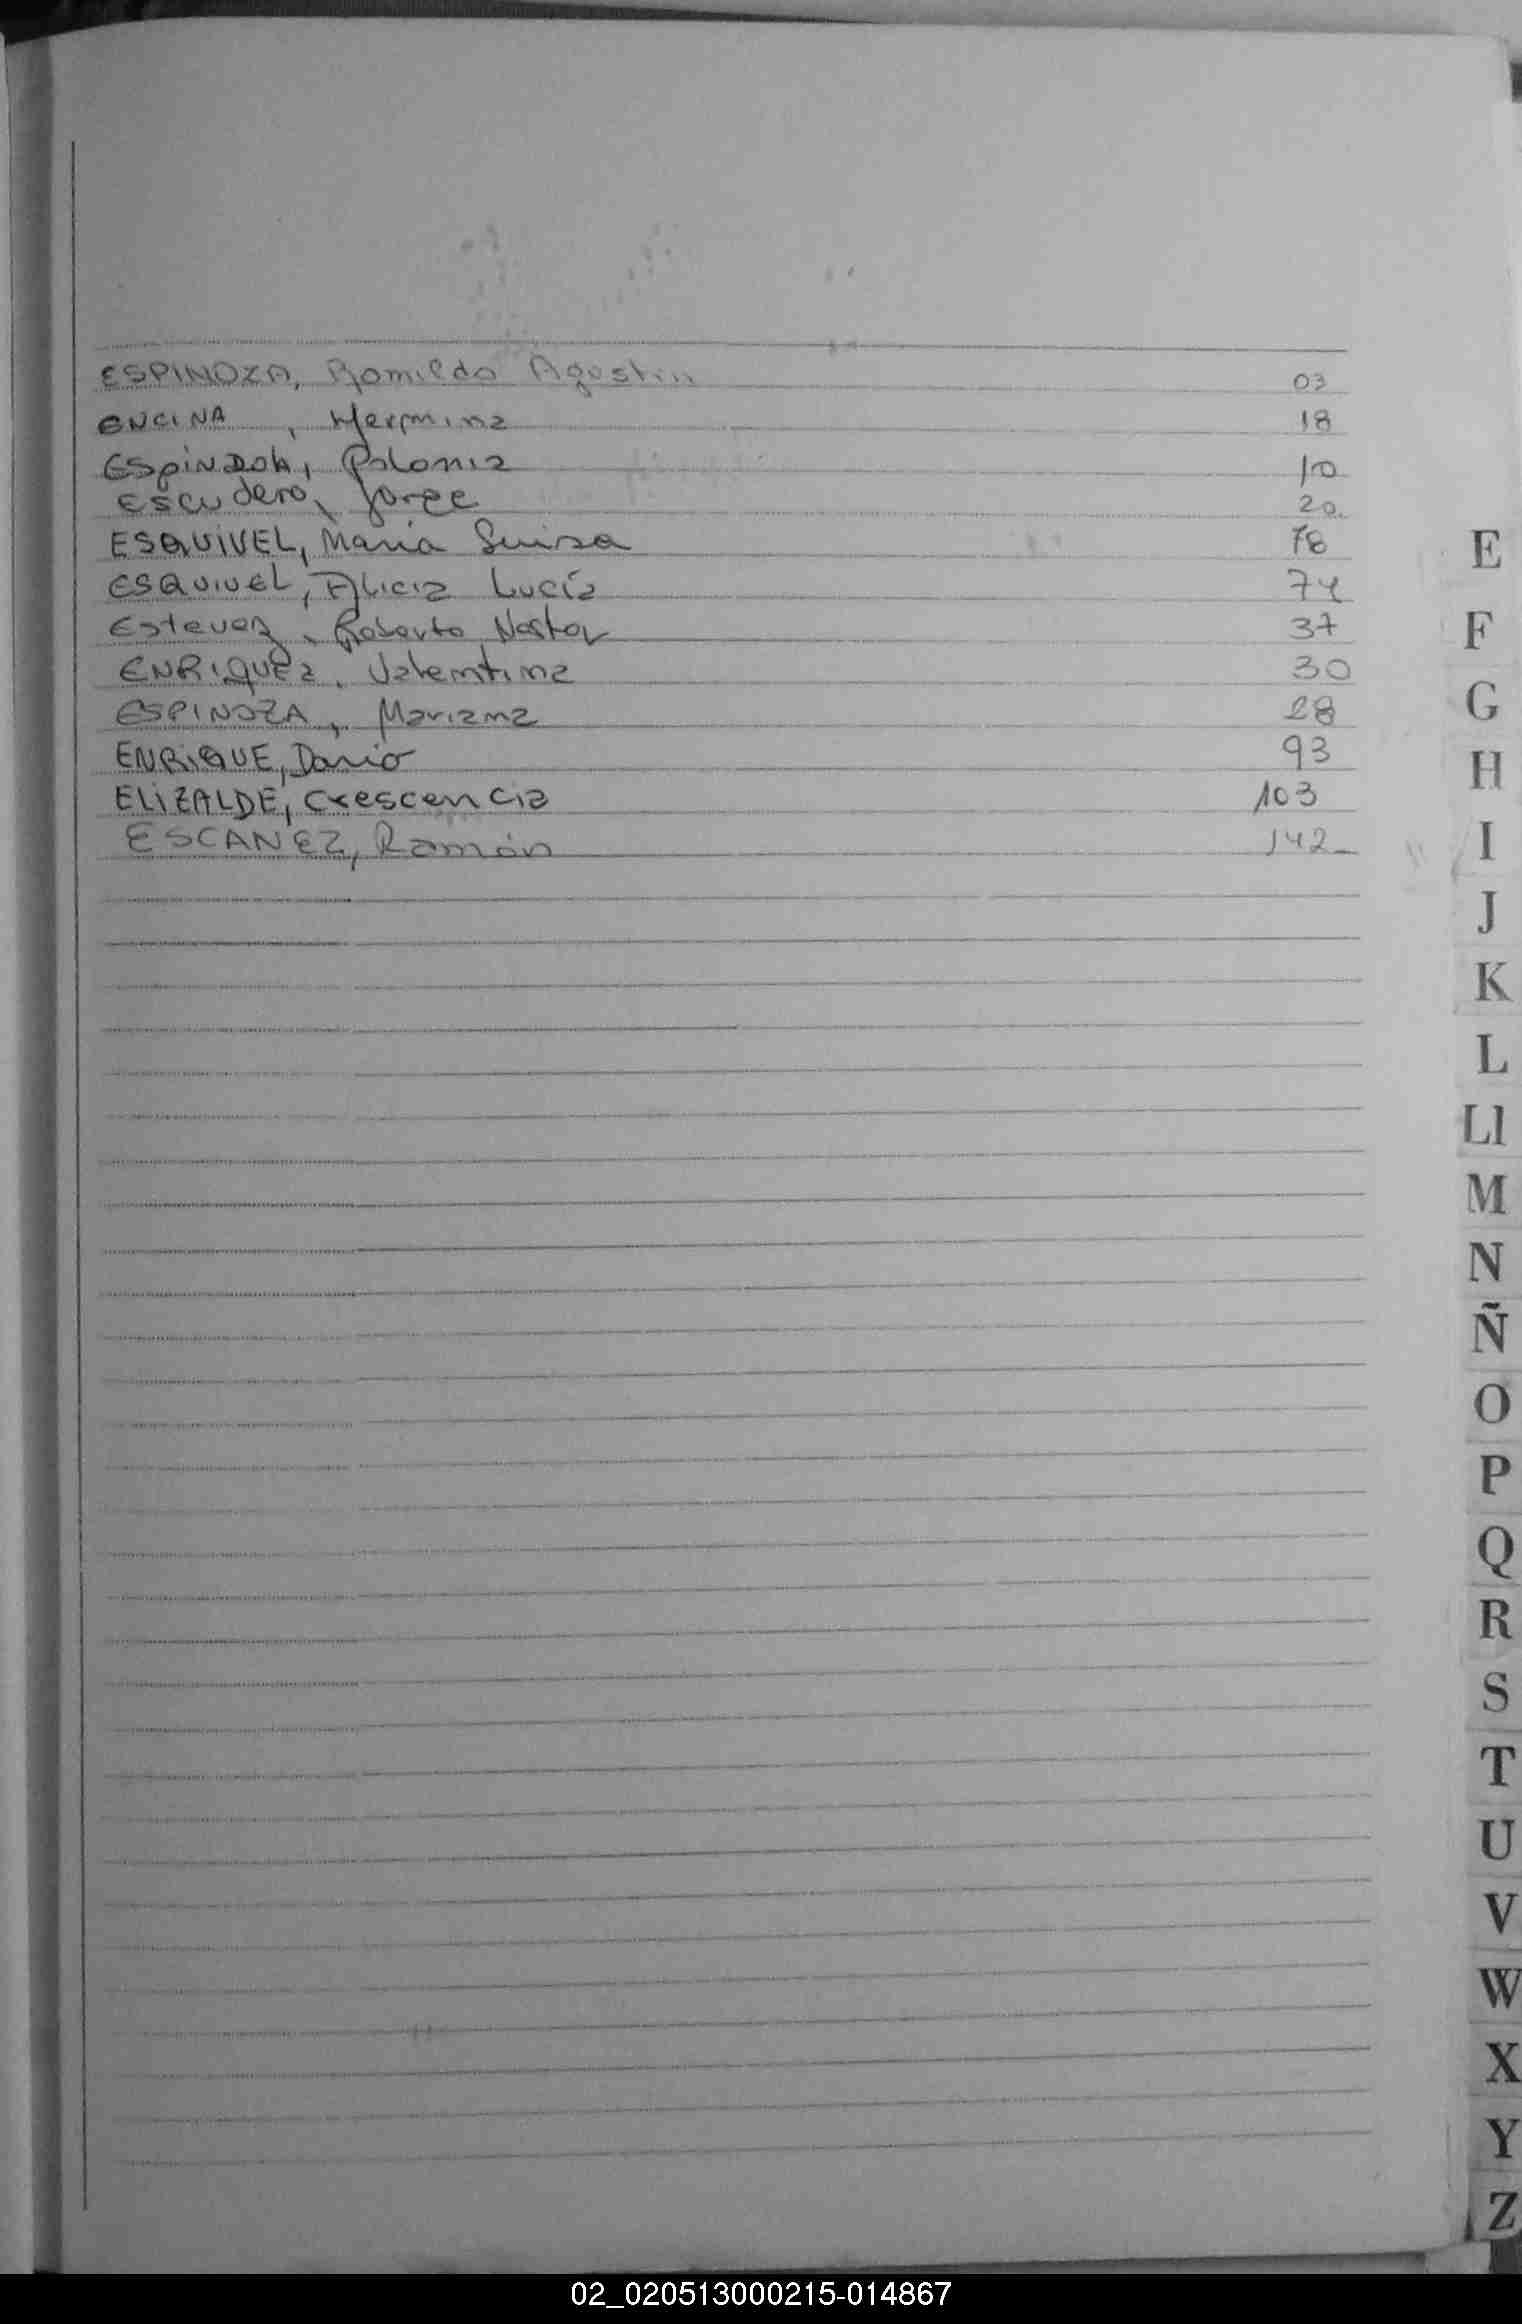 ESPINOZA, Romildo Agustin 03
ENCINA , Hermina 18
ESPINDOLA, Polonia 10
Escudero, Jorge 20
ESQUIVEL, Maria Luisa 78
ESQUIVEL, Alicia Lucía 74
Estevez, Roberto Nestor 37
ENRIQUEZ, Valentina 30
ESPINOZA, Mariana 28
ENRIQUE, Dario 93
ELIZALDE, Crescencia 103
ESCANEZ, Ramón 142
E
F
G
H
I
J
K
L
Ll
M
N
Ñ
O
P
Q
R
S
T
U
V
W
X
Y
Z
02_020513000215-014867